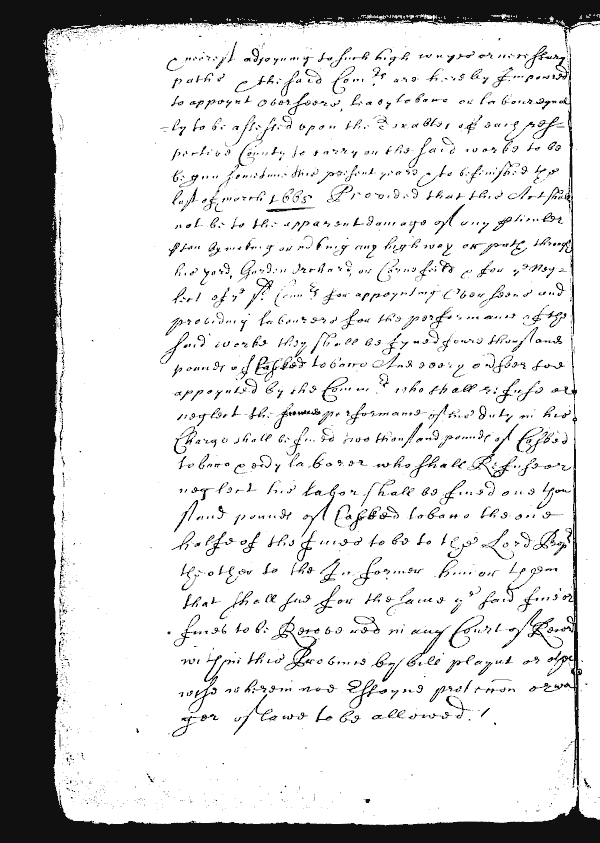 neerest adjoyning to such high wayes or necessary
paths & the said Com:rs are hereby Impowred
to appoynt Overseers, leavy tobacco or labour equal
=ly to be assessed upon the Taxables of each resp=
pective County to carry on the said worke to be
begun sometime this present yeare & to be finished the
last of march 1665 Provided that this Act shall
not be to the apparent damage of any pticuler
pson by making or any high way or path through
his yard, Garden Orchard, or Cornefeild & for ye Neg=
lect of ye sd. Com:rs for appoynting Overseers and
provideing labourers for the performance of the
said worke they shall be fyned foure thousand
pounds of Casked tobacco And every overseer soe
appoynted by the Comm:rs who shall refuse or
neglect the performance of his duty in his
Charge shall be fined two thousand pounds of Casked
tobacco & evry laborer who shall Refuse or
neglect his labor shall be fined one thou
sand pounds of Casked tobacco the one
halfe of the fines to be to the Lord Propr
the other to the Informer him or them
that shall sue for the same ye said fine or
fines to be Recovered in any Court of Record
within this Province by bill playnt or other
wise wherein noe Essoyne protection or wa
ger of lawe to be allowed. /.